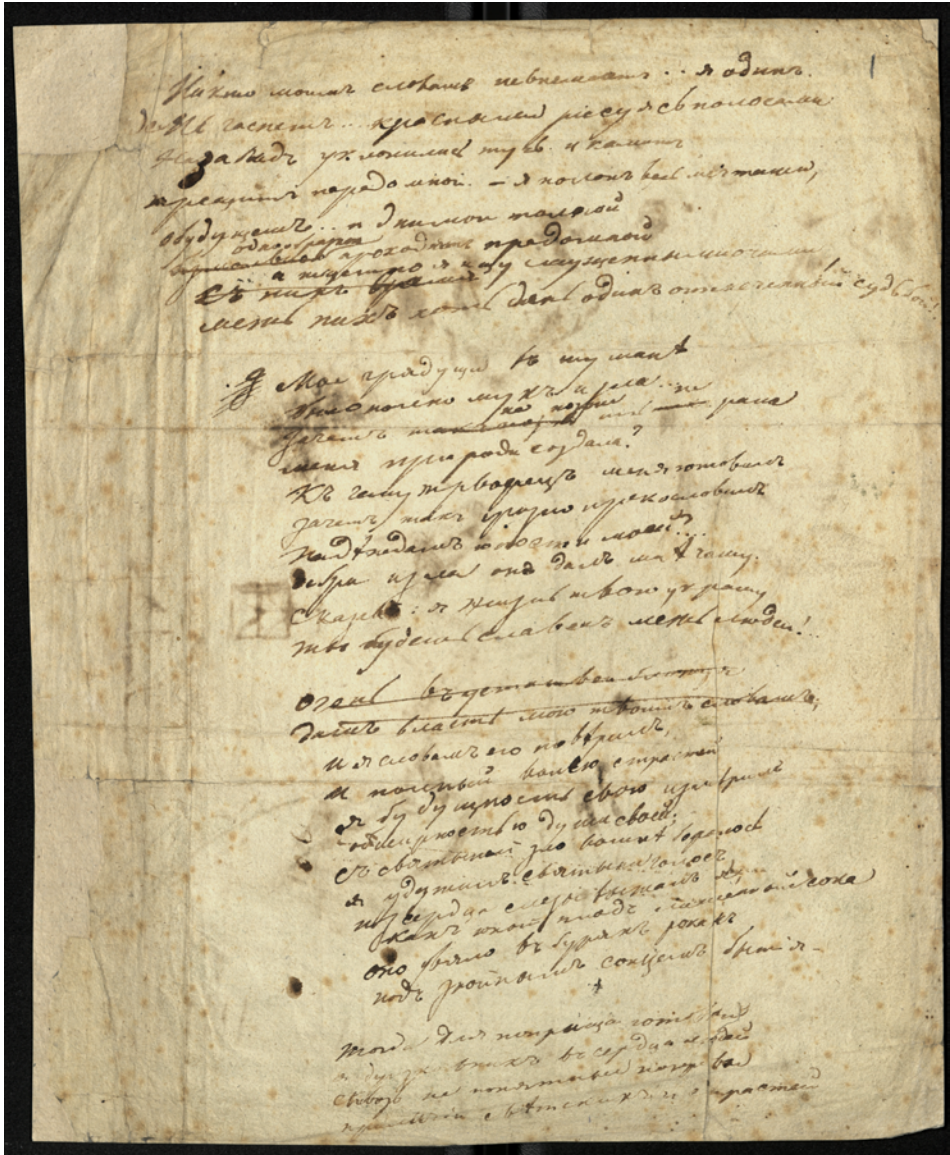 Никто моимъ словамъ невнемлетъ... я одинъ.
День гаснетъ... красными рисуясь полосами
На западъ уклонились тучи и каминъ
трещитъ передо мной. — я полонъ весь мечтами,
обудущемъ... и дни мои толпой
однообразно проходятъ предомной
и тщетно я ищу смущенными очами
межь нихъ хоть день одинъ отмѣченный судьбой!
Мое грядущее въ туманѣ
былое полно мукъ и зла...
зачемъ не позже иль не рана
меня природа создала?
Къ чему творецъ меня готовилъ
зачемъ такъ грозно прекословилъ
надѣждамъ юности моей?...
добра и зла онъ далъ мнѣ чашу.
сказавъ: я жизнь твою украшу
ты будешь славенъ межь людей!..
огень въ уста твои
дамъ власть мою твоимъ словамъ;
и я словамъ его повѣрилъ,
и полный волею страстей
я будущность свою измѣрилъ
обширностью души своей;
съ святыней зло во мнѣ боролось
я удушилъ святыни голосъ,
изъ сердца слезы выжалъ я;
какъ юный плодъ лишенный сока
оно увяло въ буряхъ рока
подъ знойнымъ сонцемъ бытія —
тогда для поприща готовый
я дерзко вникъ въ сердца людей
сквозь не понятные покровы
приличій свѣтскихъ и страстей